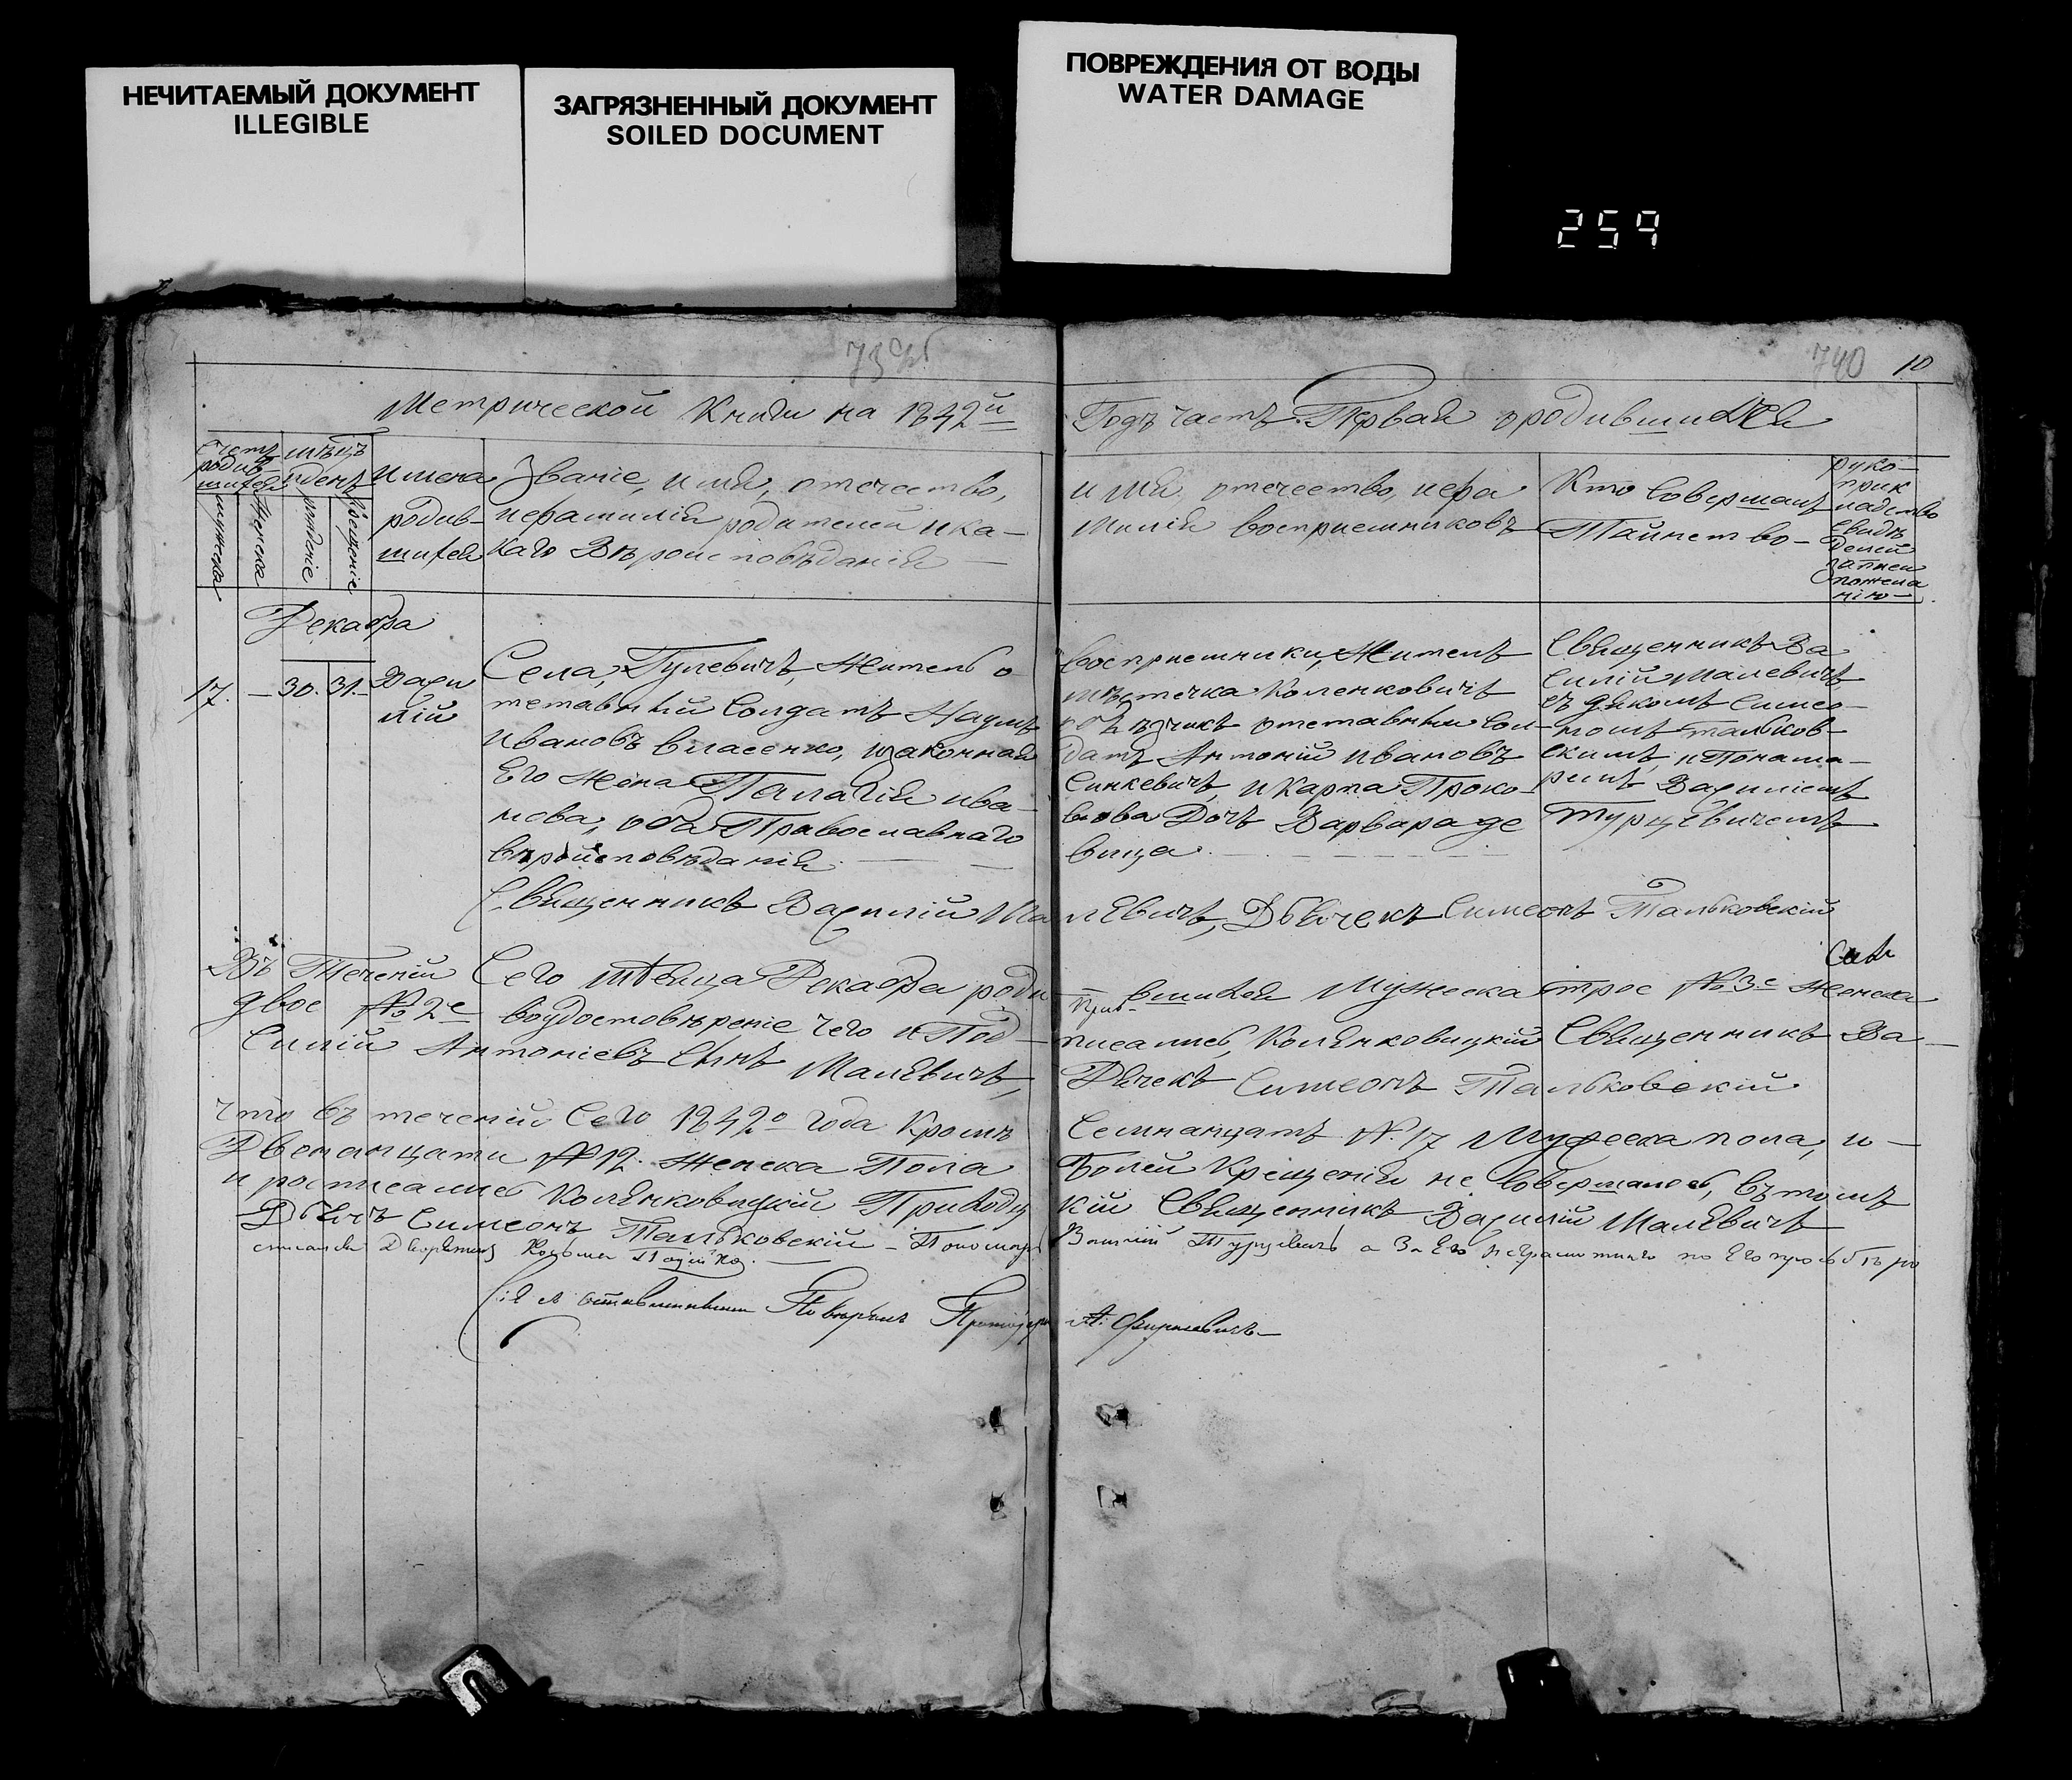 НЕЧИТАЕМЫЙ ДОКУМЕНТ
ILLEGIBLE
ЗАГРЯЗНЕННЫЙ ДОКУМЕНТ
SOILED DOCUMENT
ПОВРЕЖДЕНИЯ ОТ ВОДЫ
WATER DAMAGE
259
740 10
Метрической Книги на 1842й
Годъ часть Первая о родившихся
Счетъ родившихся
мужеска
женска
мѣцъ и день
рожденіе
крещеніе
имена
родив-
шихся
Званіе, имя, отечество,
и фамилія родителей и ка-
каго Вѣроисповѣданія
имя, отечество, и фа
милія воспріемниковъ
Кто Совершалъ
Таинство
руко-
прик
ладство
свидѣ
Декабра
17. — 30. 31. Васи
лій
Села, Гулевичъ, Житель о
тставный Солдатъ Наумъ
Ивановъ Власенко, и законная
Его Жена Палагія ива-
нова, оба Православнаго
вѣроисповѣданія
воспріемники, Житель
мѣстечка Коленковичъ
отставный Сол-
датъ Антоній Ивановъ
Синкевичъ, и Карпа Проко-
Дочъ Варвара де
вица
Священникъ Ва
силій Малевичъ
съ дякомъ Симео-
номъ Тальков-
скимъ, и Понома-
ремъ Василіемъ
Турцевичемъ
Священникъ Василій Малевичъ, Дьячекъ Симеонъ Тальковскій
Въ Теченіи Сего мѣсяца Декабра родившихся Мужеска трое № 3е Женска
двое № 2е воудостовѣреніе чего и Подписались, Коленковицкій Священникъ Ва-
силій Антоніевъ Сынъ Малевичъ, Дьячекъ Симеонъ Тальковскій
Что въ теченіи Сего 1842о года Кромѣ Семнанцатъ №. 17 Мужеска пола, и
Двенанцати № 12. Женска Пола Болей Крещенія не совершалось, въ томъ
и росписались Коленковицкій Приходскій Священникъ Василій Малевичъ
Дьячъ Симеонъ Тальковскій - Пономарь Василій Турцевичъ а За Его неграмотнаго по Его прозьбѣ ро
списался Дворянинъ Козьма